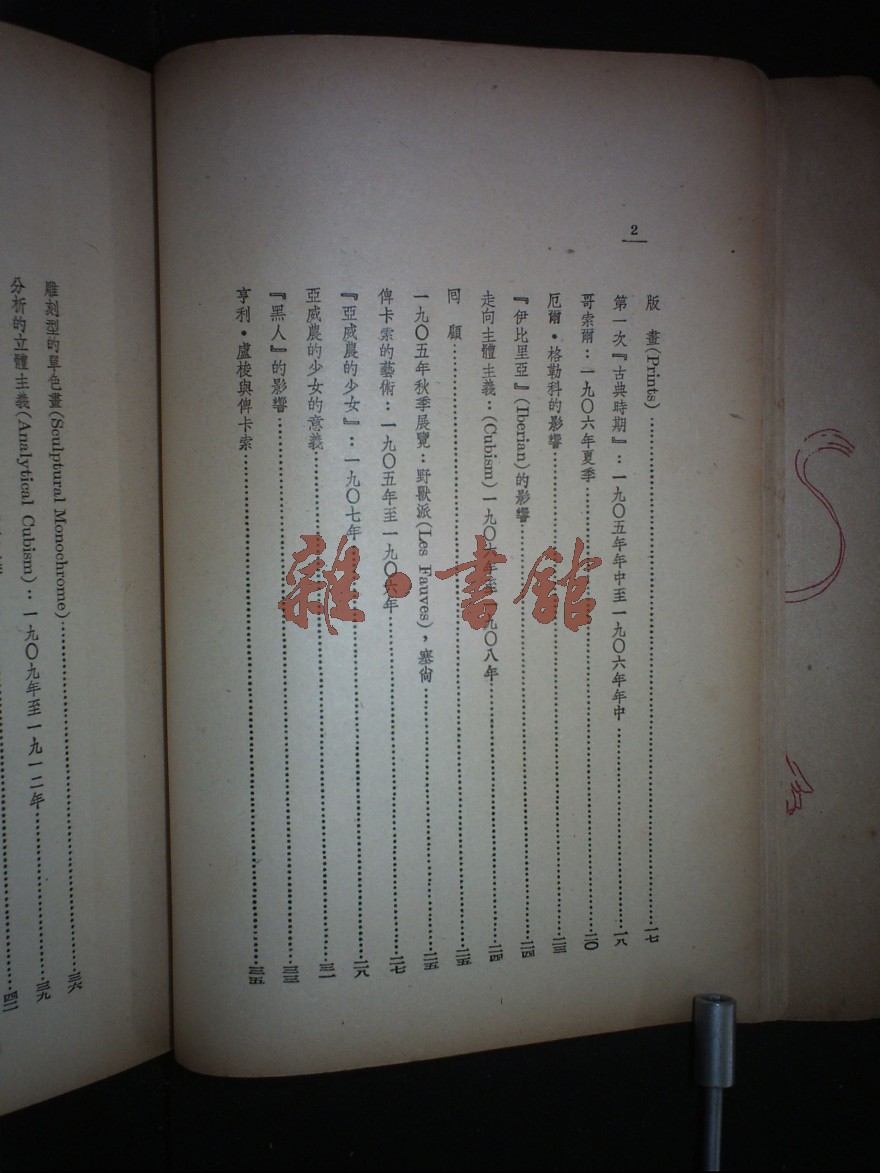 2
版　畫(Prints)……一七
第一次『古典時期』：一九〇五年年中至一九〇六年年中……一八
哥索爾：一九〇六年夏季……二〇
厄爾·格勒科的影響……二三
『伊比里亞』(Iberian)的影響……二四
走向主體主義：(Cubism)一九〇六年至一九〇八年……二四
囘　顧……二五
一九〇五年秋季展覽：野獸派(Les Fauves)，塞尙……二五
俾卡索的藝術：一九〇五年至一九〇六年……二七
『亞威農的少女』：一九〇七年……二八
亞威農的少女的意義……三一
『黑人』的影響……三三
亨利·盧梭與俾卡索……三五
雕刻型的單色畫(Sculptural Monochrome)……三六
分析的立體主義(Analytical Cubism)：一九〇九年至一九一二年……三九
四二
雜·書館